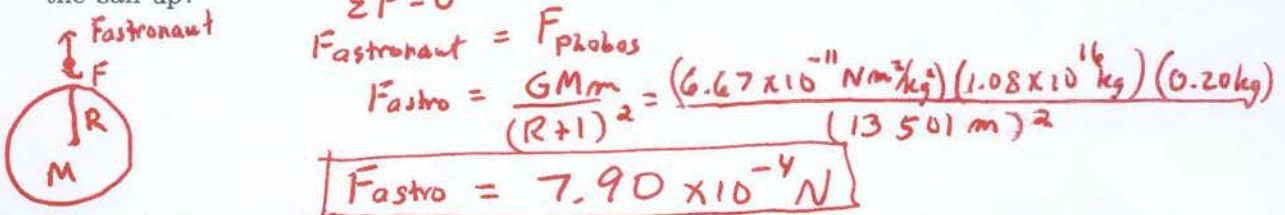 the ball up.
ΣF = 0
Fastronaut
F
R
M
Fastronaut = Fphobos
Fastro = GMm / (R+1)² = (6.67 x 10⁻¹¹ Nm²/kg²)(1.08 x 10¹⁶ kg)(0.20 kg) / (13 501 m)²
Fastro = 7.90 x 10⁻⁴ N